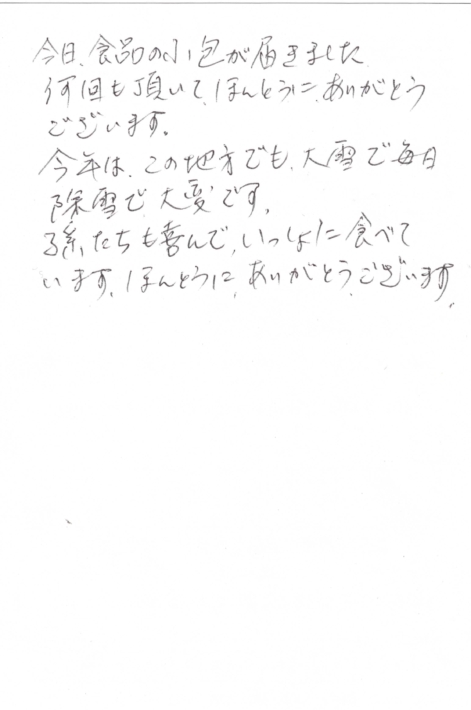 今日、食品の小包が届きました
何回も頂いて、ほんとうに、ありがとう
ございます。
今年は、この地方でも、大雪で毎日
除雪で、大変です。
孫たちも喜んで、いっしょに食べて
います、ほんとうに、ありがとうございます。